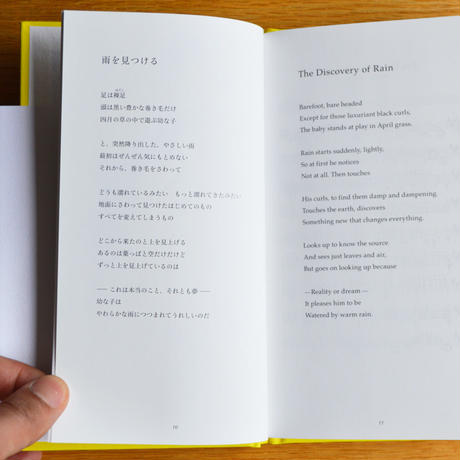 雨を見つける
足は裸足
頭は黒い豊かな巻き毛だけ
四月の草の中で遊ぶ幼な子
と、突然降り出した、やさしい雨
最初はぜんぜん気にもとめない
それから、巻き毛をさわって
どうも濡れているみたい　もっと濡れてきたみたい
地面にさわって見つけたはじめてのもの
すべてを変えてしまうもの
どこから来たのと上を見上げる
あるのは葉っぱと空だけだけど
ずっと上を見上げているのは
── これは本当のこと、それとも夢 ──
幼な子は
やわらかな雨につつまれてうれしいのだ
16
The Discovery of Rain
Barefoot, bare headed
Except for those luxuriant black curls,
The baby stands at play in April grass.
Rain starts suddenly, lightly,
So at first he notices
Not at all. Then touches
His curls, to find them damp and dampening.
Touches the earth, discovers
Something new that changes everything.
Looks up to know the source
And sees just leaves and air,
But goes on looking up because
— Reality or dream —
It pleases him to be
Watered by warm rain.
17